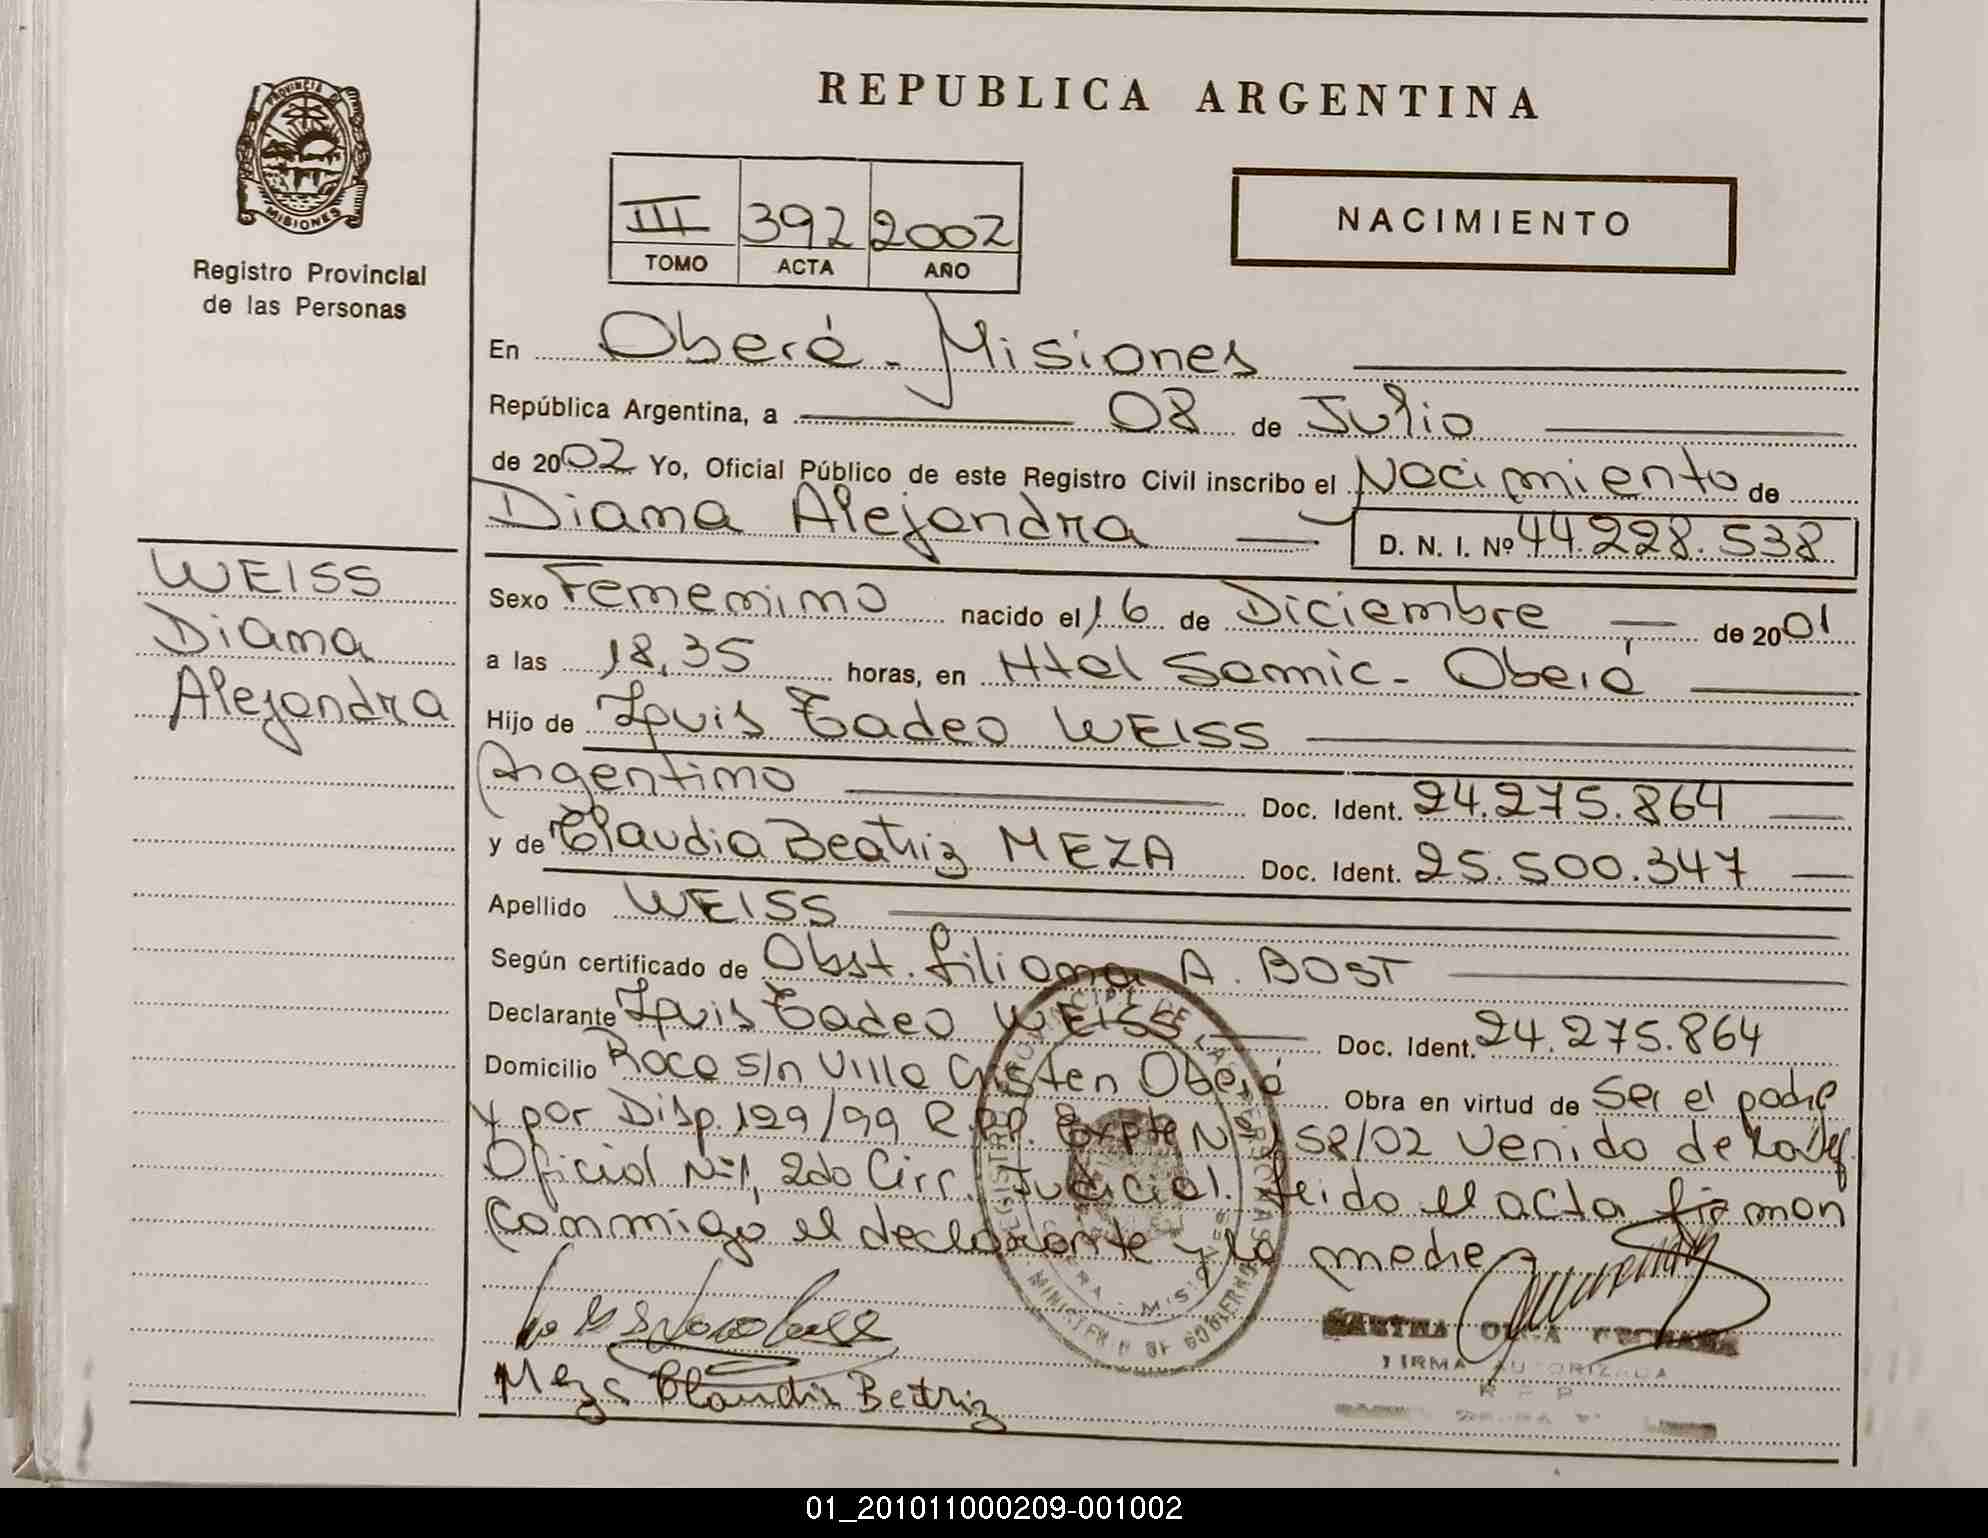 REPUBLICA ARGENTINA
PROVINCIA DE
MISIONES
Registro Provincial
de las Personas
III 392 2002
TOMO ACTA AÑO
NACIMIENTO
En Oberá - Misiones
República Argentina, a 08 de Julio
de 2002 Yo, Oficial Público de este Registro Civil inscribo el Nacimiento de
Diana Alejandra D. N. I. Nº 44.228.538
WEISS
Diana
Alejandra
Sexo Femenino nacido el 16 de Diciembre de 2001
a las 18,35 horas, en Htal Samic - Oberá
Hijo de Luis Tadeo WEISS
Argentino Doc. Ident. 24.275.864
y de Claudia Beatriz MEZA Doc. Ident. 25.500.347
Apellido WEISS
Según certificado de Obst. Liliana A. BOST
Declarante Luis Tadeo WEISS Doc. Ident. 24.275.864
Domicilio Roca s/n Villa Cristen Oberá Obra en virtud de ser el padre
y por Disp. 129/99 R.P.P. Expte Nº 58/02 Venido de la
Oficial Nº1, 2do Circ. Judicial. Leido el acta firman
conmigo el declarante y la madre
Meza Claudia Beatriz
FIRMA AUTORIZADA
R P P
01_201011000209-001002